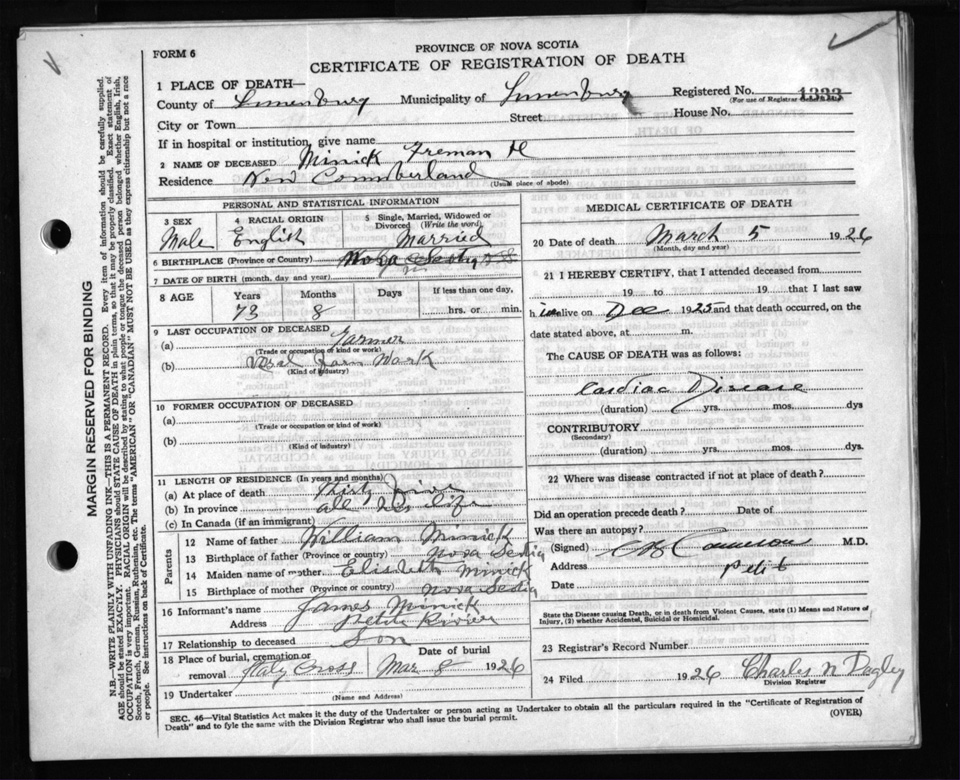 PROVINCE OF NOVA SCOTIA
FORM 6
CERTIFICATE OF REGISTRATION OF DEATH
1 PLACE OF DEATH—
County of Lunenburg Municipality of Lunenburg Registered No. 1333
(For use of Registrar
City or Town Street House No.
If in hospital or institution, give name
2 NAME OF DECEASED Minick Freman H
Residence New Cumberland (Usual place of abode)
PERSONAL AND STATISTICAL INFORMATION
3 SEX 4 RACIAL ORIGIN 5 Single, Married, Widowed or Divorced (Write the word)
Male English Married
6 BIRTHPLACE (Province or Country) Nova
7 DATE OF BIRTH (month, day and year)
8 AGE Years Months Days If less than one day,
73 8 hrs. or min.
9 LAST OCCUPATION OF DECEASED
(a) Farmer
(Trade or occupation of kind or work)
(b) Farm Work
(Kind of industry)
10 FORMER OCCUPATION OF DECEASED
(a)
(Trade or occupation or kind of work)
(b)
(Kind of industry)
11 LENGTH OF RESIDENCE (In years and months)
(a) At place of death
(b) In province all his life
(c) In Canada (if an immigrant)
Parents
12 Name of father William Minick
13 Birthplace of father (Province or country) Nova Sectia
14 Maiden name of mother Elisdeth Minick
15 Birthplace of mother (Province or country) Nova Sectia
16 Informant's name James Minick
Address Petite Rivier
17 Relationship to deceased Son
18 Place of burial, cremation or removal Date of burial
Italy Cross Mar 8 1926
19 Undertaker
(Name and Address)
MEDICAL CERTIFICATE OF DEATH
20 Date of death March 5 1926
(Month, day and year)
21 I HEREBY CERTIFY, that I attended deceased from
19 to 19 that I last saw
h im alive on Dec 1925 and that death occurred, on the
date stated above, at m.
The CAUSE OF DEATH was as follows:
Cardiac Disease
(duration) yrs. mos. dys
CONTRIBUTORY
(Secondary)
(duration) yrs. mos. dys.
22 Where was disease contracted if not at place of death?
Did an operation precede death? Date of
Was there an autopsy?
(Signed) Cameron M.D.
Address Petit
Date
State the Disease causing Death, or in death from Violent Causes, state (1) Means and Nature of Injury, (2) whether Accidental, Suicidal or Homicidal.
23 Registrar's Record Number
24 Filed 1926 Charles N Dagley
Division Registrar
SEC. 46—Vital Statistics Act makes it the duty of the Undertaker or person acting as Undertaker to obtain all the particulars required in the "Certificate of Registration of
Death" and to fyle the same with the Division Registrar who shall issue the burial permit.
(OVER)
MARGIN RESERVED FOR BINDING
N.B.—WRITE PLAINLY WITH UNFADING INK—THIS IS A PERMANENT RECORD. Every item of information should be carefully supplied.
AGE should be stated EXACTLY. PHYSICIANS should STATE CAUSE OF DEATH in plain terms, so that it may be properly classified. Exact statement of
OCCUPATION is very important. RACIAL ORIGIN will be described by stating to what people or tongue the deceased person belonged whether English, Irish,
Scotch, French, German, Russian, Ruthenian, etc. The terms "AMERICAN" OR "CANADIAN" MUST NOT BE USED as they express citizenship but not a race
or people. See instructions on back of Certificate.